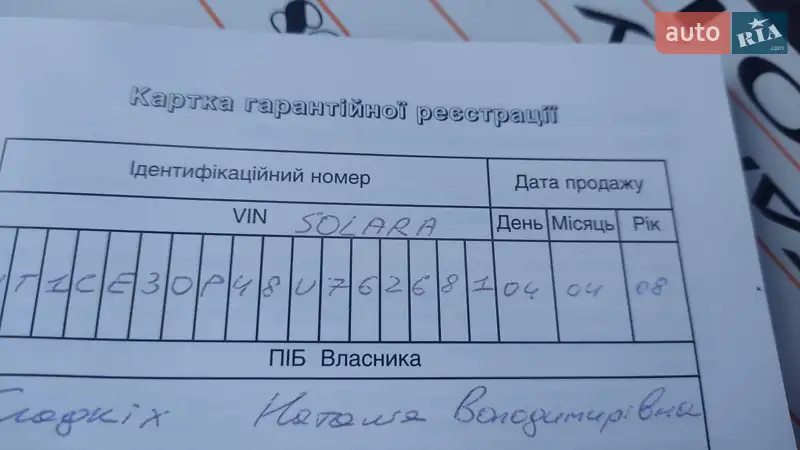 auto RIA .com
Картка гарантійної реєстрації
Ідентифікаційний номер Дата продажу
VIN SOLARA День Місяць Рік
T1CE30P48U762681 04 04 08
ПІБ Власника
Наталія Володимирівна